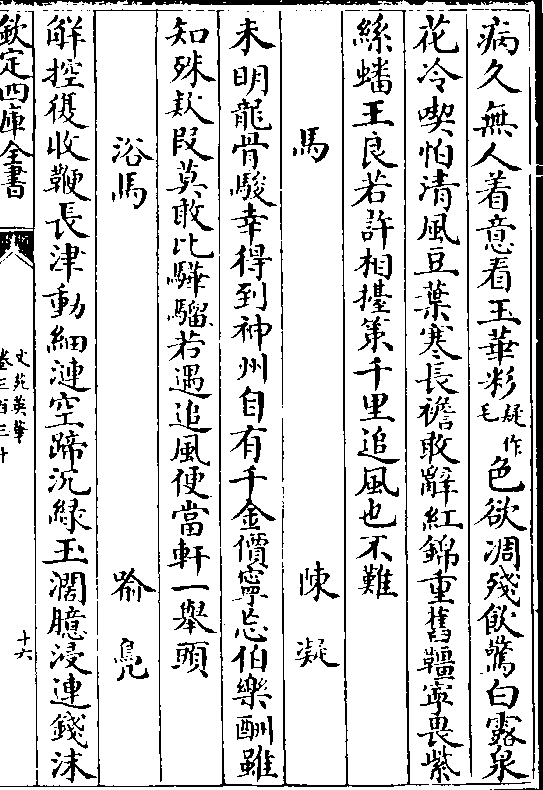 病久無人着意看玉華彩疑作毛色欲凋殘飲驚白露泉
花冷喫怕清風豆葉寒長襜敢辭紅錦重舊韁寜畏紫
絲蟠王良若許相擡策千里追風也不難
馬 陳凝
未明龍骨駿幸得到神州自有千金價寧忘伯樂酬雖
知殊欵段莫敢比驊騮若遇追風便當軒一舉頭
浴馬 喻鳧
解控復收鞭長津動細漣空蹄沉緑玉濶臆浸連錢沫
欽定四庫全書
文苑英華
卷三百三十
十六